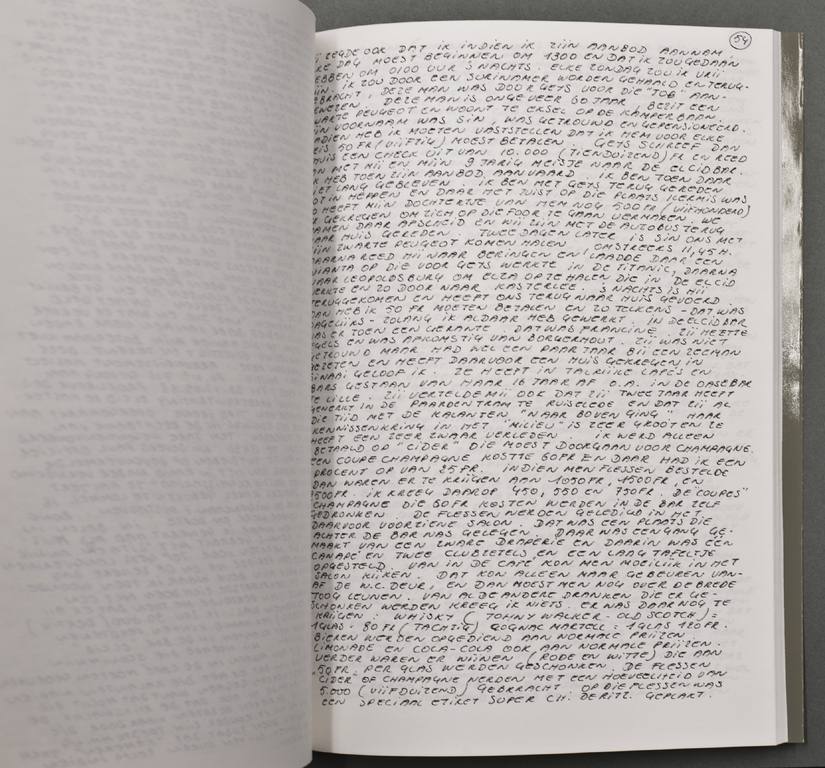 54
ZEGDE OOK DAT IK INDIEN IK ZIJN AANBOD AANNAM
DAG MOEST BEGINNEN OM 1300 EN DAT IK ZOU GEDAAN
EBBEN OM 0100 UUR 'S NACHTS. ELKE ZONDAG ZOU IK VRIJ
IJN. IK ZOU DOOR EEN SURINAMER WORDEN GEHAALD EN TERUG-
EBRACHT, DEZE MAN WAS DOOR GEYS VOOR DIE "JOB" AAN-
EWEZEN. DEZE MAN IS ONGEVEER 60 JAAR, BEZIT EEN
WARTE PEUGEOT EN WOONT TE EKSEL OP DE KAMPERBAAN.
IJN VOORNAAM WAS SIN, WAS GETROUWD EN GEPENSIONEERD.
ADIEN HEB IK MOETEN VASTSTELLEN DAT IK HEM VOOR ELKE
REIS 50 FR (VIJFTIG) MOEST BETALEN. GEYS SCHREEF DAN
HUIS EEN CHECK UIT VAN 10.000 (TIENDUIZEND) FR EN REED
AN MET MIJ EN MIJN 9 JARIG MEISJE NAAR DE EL CID BAR.
K HEB TOEN ZIJN AANBOD AANVAARD. IK BEN TOEN DAAR
IET LANG GEBLEVEN. IK BEN MET GEYS TERUG GEREDEN
OT IN HEPPEN EN DAAR HET JUIST OP DIE PLAATS KERMIS WAS
O HEEFT MIJN DOCHTERTJE VAN HEM NOG 500 FR (VIJFHONDERD)
GEKREGEN OM ZICH OP DIE FOOR TE GAAN VERMAKEN. WE
NAMEN DAAR AFSCHEID EN WIJ ZIJN MET DE AUTOBUS TERUG
NAAR HUIS GEREDEN. TWEE DAGEN LATER IS SIN ONS MET
ZIJN ZWARTE PEUGEOT KOMEN HALEN, OMSTREEKS 11,45 H.
DAARNA REED HIJ NAAR BERINGEN EN LAADDE DAAR EEN
VIANTA OP DIE VOOR GEYS WERKTE IN DE TITANIC, DAARNA
NAAR LEOPOLDSBURG OM ELZA OP TE HALEN DIE IN DE EL CID
WERKTE EN ZO DOOR NAAR KASTERLEE. 'S NACHTS IS HIJ
TERUGGEKOMEN EN HEEFT ONS TERUG NAAR HUIS GEVOERD.
DAN HEB IK 50 FR MOETEN BETALEN EN ZO TELKENS - DAT WAS
DAGELIJKS - ZOLANG IK ALDAAR HEB GEWERKT. IN DE EL CID BAR
WAS ER TOEN EEN GERANTE. DAT WAS FRANCINE. ZIJ HEETTE
GELS EN WAS AFKOMSTIG VAN BORGERHOUT. ZIJ WAS NIET
GETROUWD MAAR HAD WEL EEN PAAR JAAR BIJ EEN ZEEMAN
GEZETEN EN HEEFT DAARVOOR EEN HUIS GEKREGEN IN
SINAAI GELOOF IK. ZE HEEFT IN TALRIJKE CAFE'S EN
BARS GESTAAN VAN HAAR 16 JAAR AF O.A. IN DE OASEBAR
TE LILLE. ZIJ VERTELDE MIJ OOK DAT ZIJ TWEE JAAR HEEFT
GEWERKT IN DE PAARDENTRAM TE RUISELEDE EN DAT ZIJ AL
DIE TIJD MET DE KALANTEN "NAAR BOVEN GING". HAAR
KENNISSENKRING IN HET "MILIEU" IS ZEER GROOT EN ZE
HEEFT EEN ZEER ZWAAR VERLEDEN. IK WERD ALLEEN
BETAALD OP "CIDER" DIE MOEST DOORGAAN VOOR CHAMPAGNE.
EEN COUPE CHAMPAGNE KOSTTE 60 FR EN DAAR HAD IK EEN
PROCENT OP VAN 25 FR. INDIEN MEN FLESSEN BESTELDE
DAN WAREN ER TE KRIJGEN AAN 1050 FR, 1500 FR, EN
2500 FR. IK KREEG DAAROP 450, 550 EN 750 FR. DE "COUPES"
CHAMPAGNE DIE 60 FR KOSTEN WERDEN IN DE BAR ZELF
GEDRONKEN. DE FLESSEN WERDEN GELEDIGD IN HET
DAARVOOR VOORZIENE SALON. DAT WAS EEN PLAATS DIE
ACHTER DE BAR WAS GELEGEN. DAAR WAS EEN GANG GE-
MAAKT VAN EEN ZWARE DRAPERIE EN DAARIN WAS EEN
CANAPE EN TWEE CLUBZETELS EN EEN LAAG TAFELTJE
OPGESTELD. VAN IN DE CAFE KON MEN MOEILIJK IN HET
SALON KIJKEN. DAT KON ALLEEN MAAR GEBEUREN VAN-
AF DE W.C. DEUR, EN DAN MOEST MEN NOG OVER DE BREDE
TOOG LEUNEN. VAN AL DE ANDERE DRANKEN DIE ER GE-
SCHONKEN WERDEN KREEG IK NIETS. ER WAS DAAR NOG TE
KRIJGEN: WHISKY (JOHNY WALKER - OLD SCOTCH) =
1 GLAS = 80 FR (TACHTIG) COGNAC MARTELL = 1 GLAS 120 FR.
BIEREN WERDEN OPGEDIEND AAN NORMALE PRIJZEN.
LIMONADE EN COCA-COLA OOK AAN NORMALE PRIJZEN.
VERDER WAREN ER WIJNEN (RODE EN WITTE) DIE AAN
50 FR PER GLAS WERDEN GESCHONKEN. DE FLESSEN
"CIDER" OF CHAMPAGNE WERDEN MET EEN HOEVEELHEID VAN
5.000 (VIJFDUIZEND) GEBRACHT. OP DIE FLESSEN WAS
EEN SPECIAAL ETIKET SUPER CH. DE RITZ. GEPLAKT.